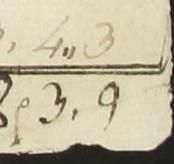 . 4„3
8 3. 9